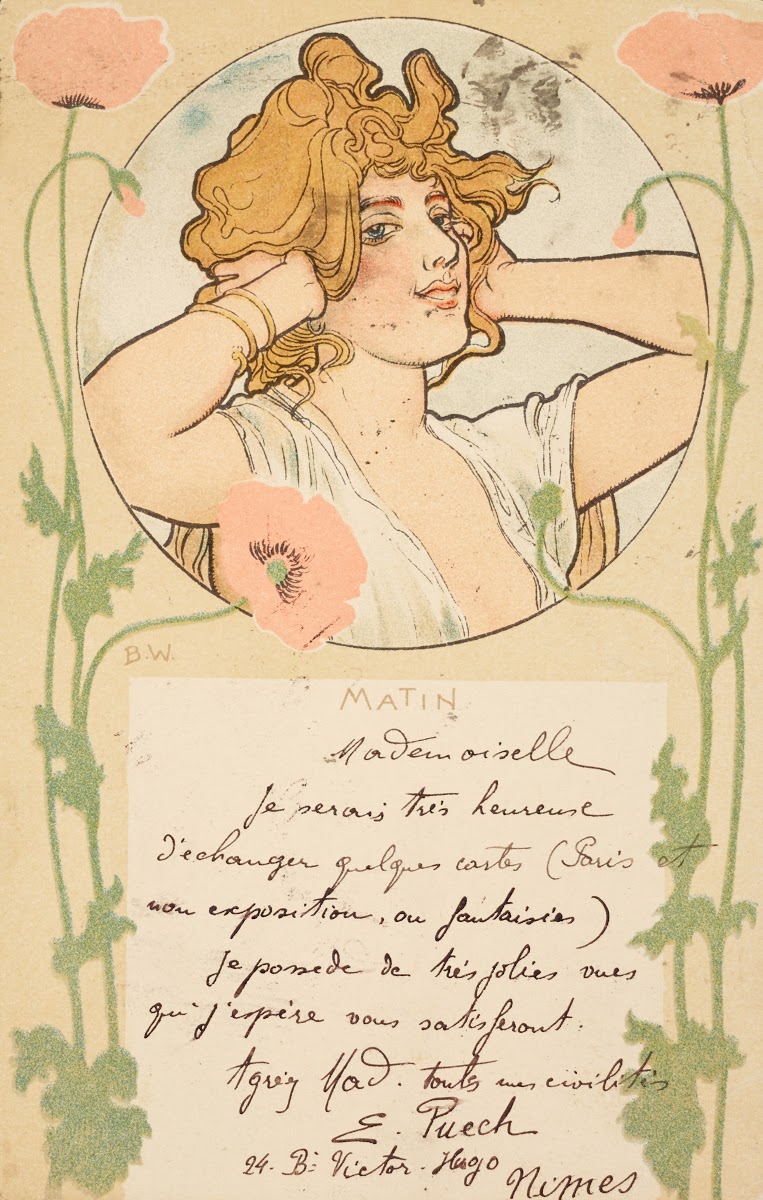 B.W.
MATIN
Mademoiselle
Je serais très heureuse
d'échanger quelques cartes (Paris et
non exposition, ou fantaisies)
Je possède de très jolies vues
qui j'espère vous satisferont.
Agréez Mad. toutes mes civilités
E. Puech
24. Bd Victor-Hugo
Nimes